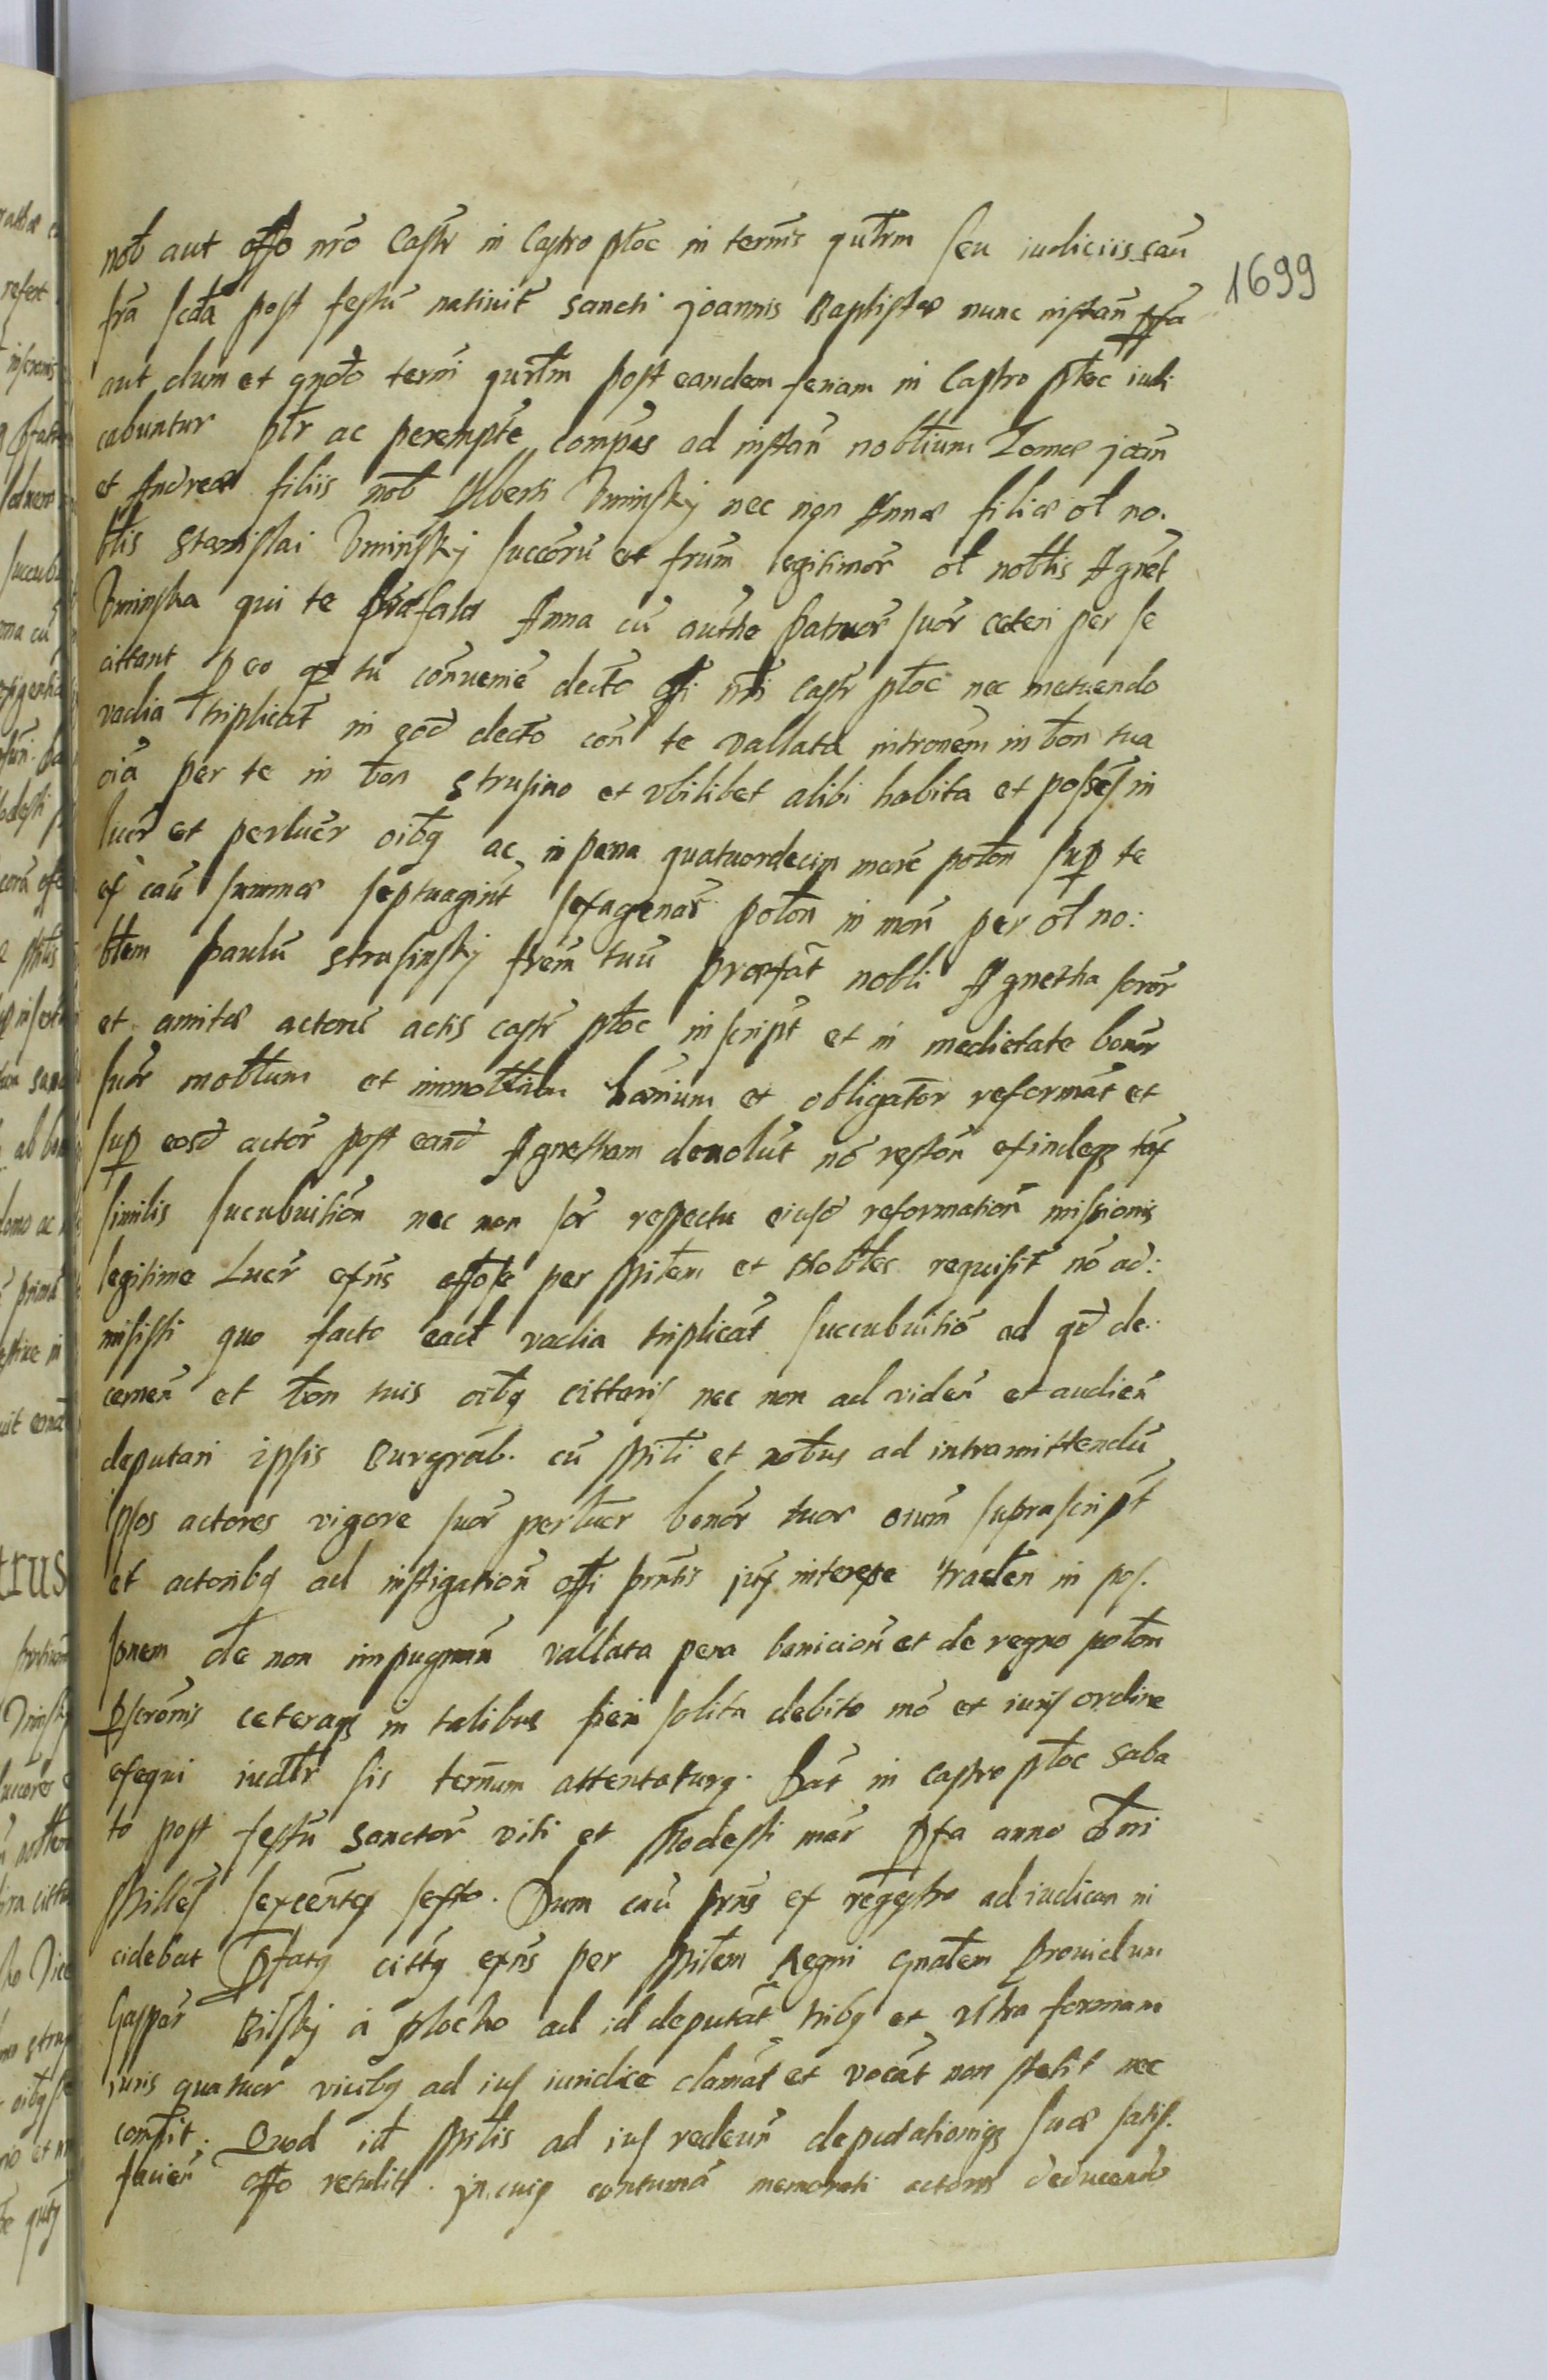 nob aut offo nro Castr in Castro ploc in termis qurlm seu iudiciis cau
1699
fra scda post festu nativit sancti joannis Baptistae nunc instan pffa
aut dum et qndo termi qurlm post eandem feriam in Castro ploc iudi
cabuntur plr ac perempte compas ad instan nobilium Tomae joan
et Andreae filiis nob Alberti Uminskj nec non Annae filiae ol no.
blis Stanislai Uminskj succoru et frum legitimor ol noblis Agnet
Uminska qui te praefata Anna cu autho patruor suor ceteri per se
cittant peo qz tu convenie decto offi nri castr ploc nec metuendo
vadia triplicat in eod decto con te vallata intronem in bon tua
oia per te in bon Strusino et ubilibet alibi habita et posses in
lucr et perlucr oibq ac in pena quatuordecim marc polon sup te
ex cau summae septuagint sexagenar polon in mon per ol no:
blem Paulu Strusinskj frem tuu praefat nobli Agnetha soror
et amitae actores actis castr ploc inscript et in medietate bonor
suor moblium et immoblium haérium et obligator reformat et
sup eosd actor post eand Agnetham devolut no reston exindeqz tax
similis sucubuision nec non sor respectu eiusd reformation missionis
legitime Lucr exns offose per Mltem et Nobles requisit no ad:
misisti quo facto ead vadia triplicat succubuisio ad qd de:
cernen et bon tuis oibq cittaris nec non ad viden et audien
deputari ipsis Burgrab. cu Mlti et nobus ad intramittendu
ipsos actores vigore suor perlucr bonor tuor oium suprascript
et actoribq ad instigation offi prntis jux interesse traden in pos.
sonem de non impugnan vallata pena banicion et de regno polon
pscronis ceteraqz in talibus fieri solita debito mo et iuris ordine
exequi iudlr sis termum attentaturq. Dat in castro ploc saba
to post festu sanctor viti et Modesti mar pfa anno dmi
Milles sexcentq sexto. Dum cau prns ex regestro ad iudican in
cidebat pfatq cittq exns per Mltem Regni gnalem providum
Gaspar Bilskj a plocko ad id deputat tribq et ultra formam
iuris quatuor vicibq ad ius iuridice clamat et vocat non stetit nec
comprit. Quod id Mltis ad ius redeun deputationiqz suae satis.
facien offo retulit. jn cuiq contuma memorati actores deducend